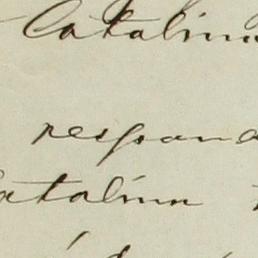 Catalina
respond
Catalina